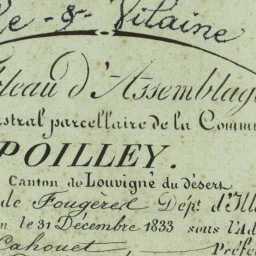 e-&-Vilaine
leau d'Assemblag
astral parcellaire de la Commu
POILLEY.
Canton de Louvigné du désert
de Fougères Dép.t d'Ill
n le 31 Décembre 1833 sous l'Ad
Cahouet, Préfe